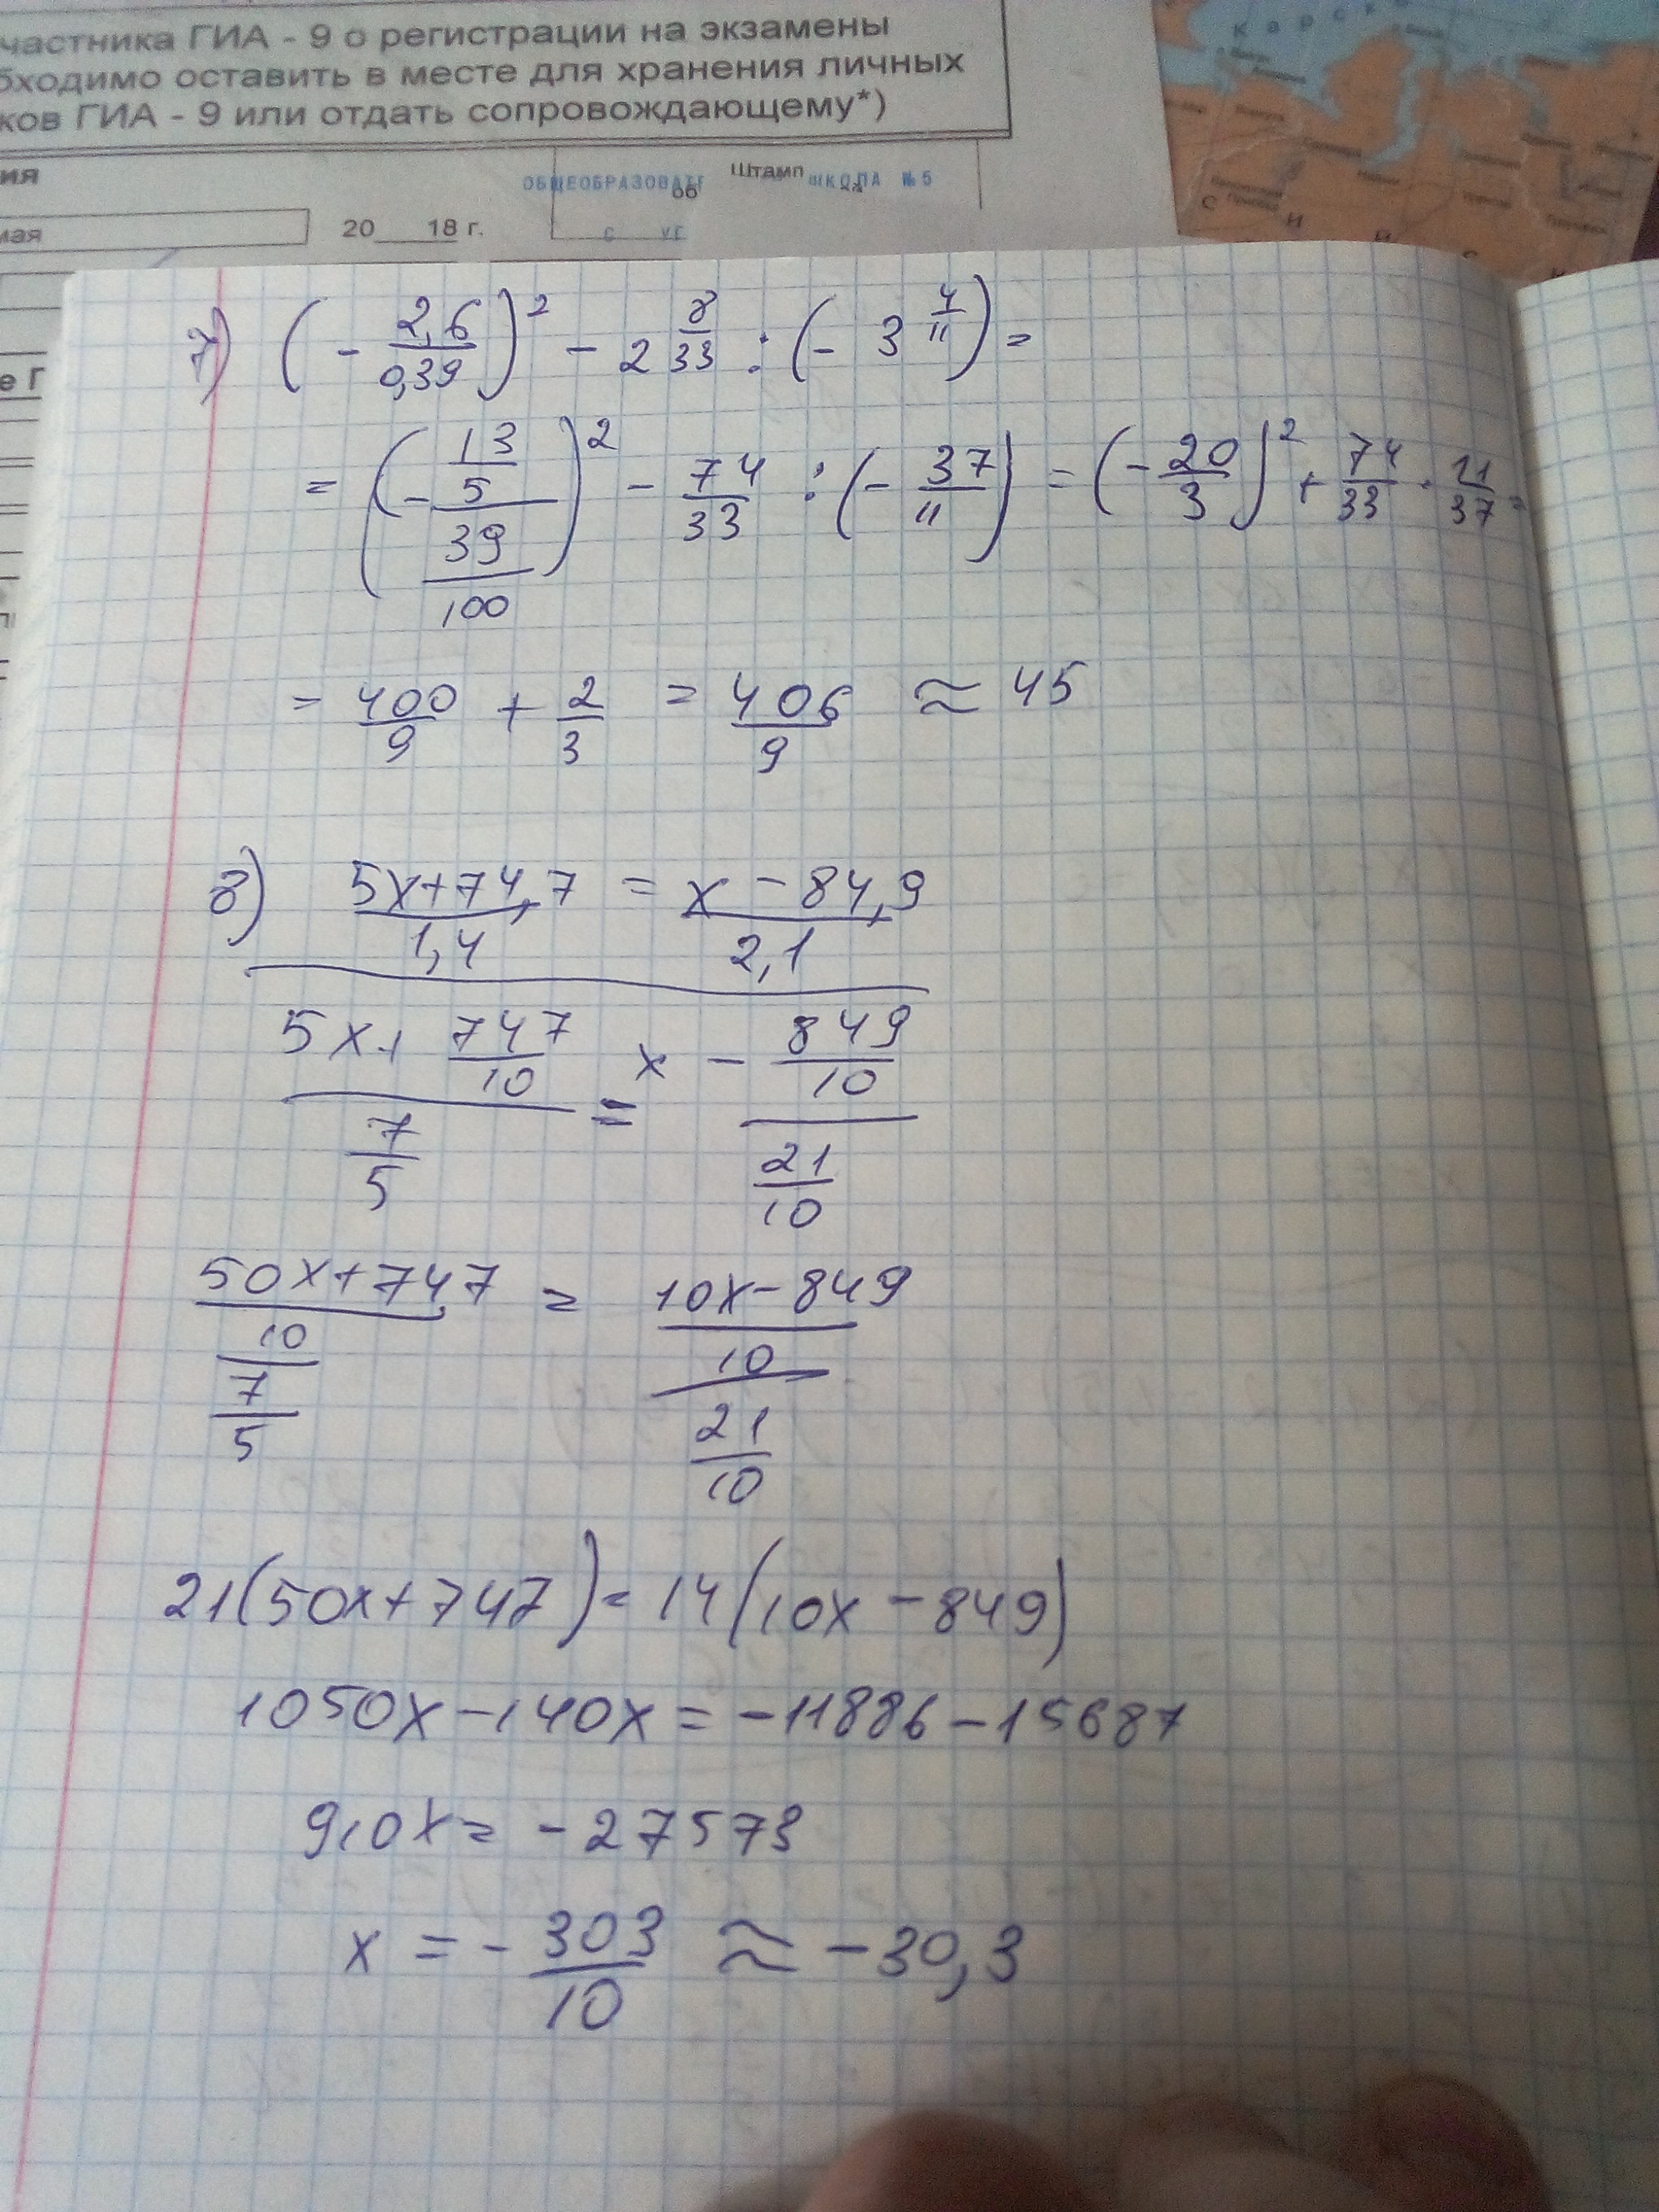 частника ГИА - 9 о регистрации на экзамены
бходимо оставить в месте для хранения личных
ков ГИА - 9 или отдать сопровождающему*)
ия
Штамп
ОБЩЕОБРАЗОВАТ ШКОЛА №5
мая 20 18 г.
Карск
е Г
7) (- 2,6/0,39)² - 2 8/33 : (- 3 4/11) =
= (- (13/5)/(39/100))² - 74/33 : (- 37/11) = (- 20/3)² + 74/33 · 11/37 =
= 400/9 + 2/3 = 406/9 ≈ 45
8) (5x+74,7)/1,4 = (x-84,9)/2,1
(5x+ 747/10)/(7/5) = (x - 849/10)/(21/10)
((50x+747)/10)/(7/5) = ((10x-849)/10)/(21/10)
21(50x+747) = 14(10x-849)
1050x-140x = -11886-15687
910x = -27573
x = - 303/10 ≈ -30,3